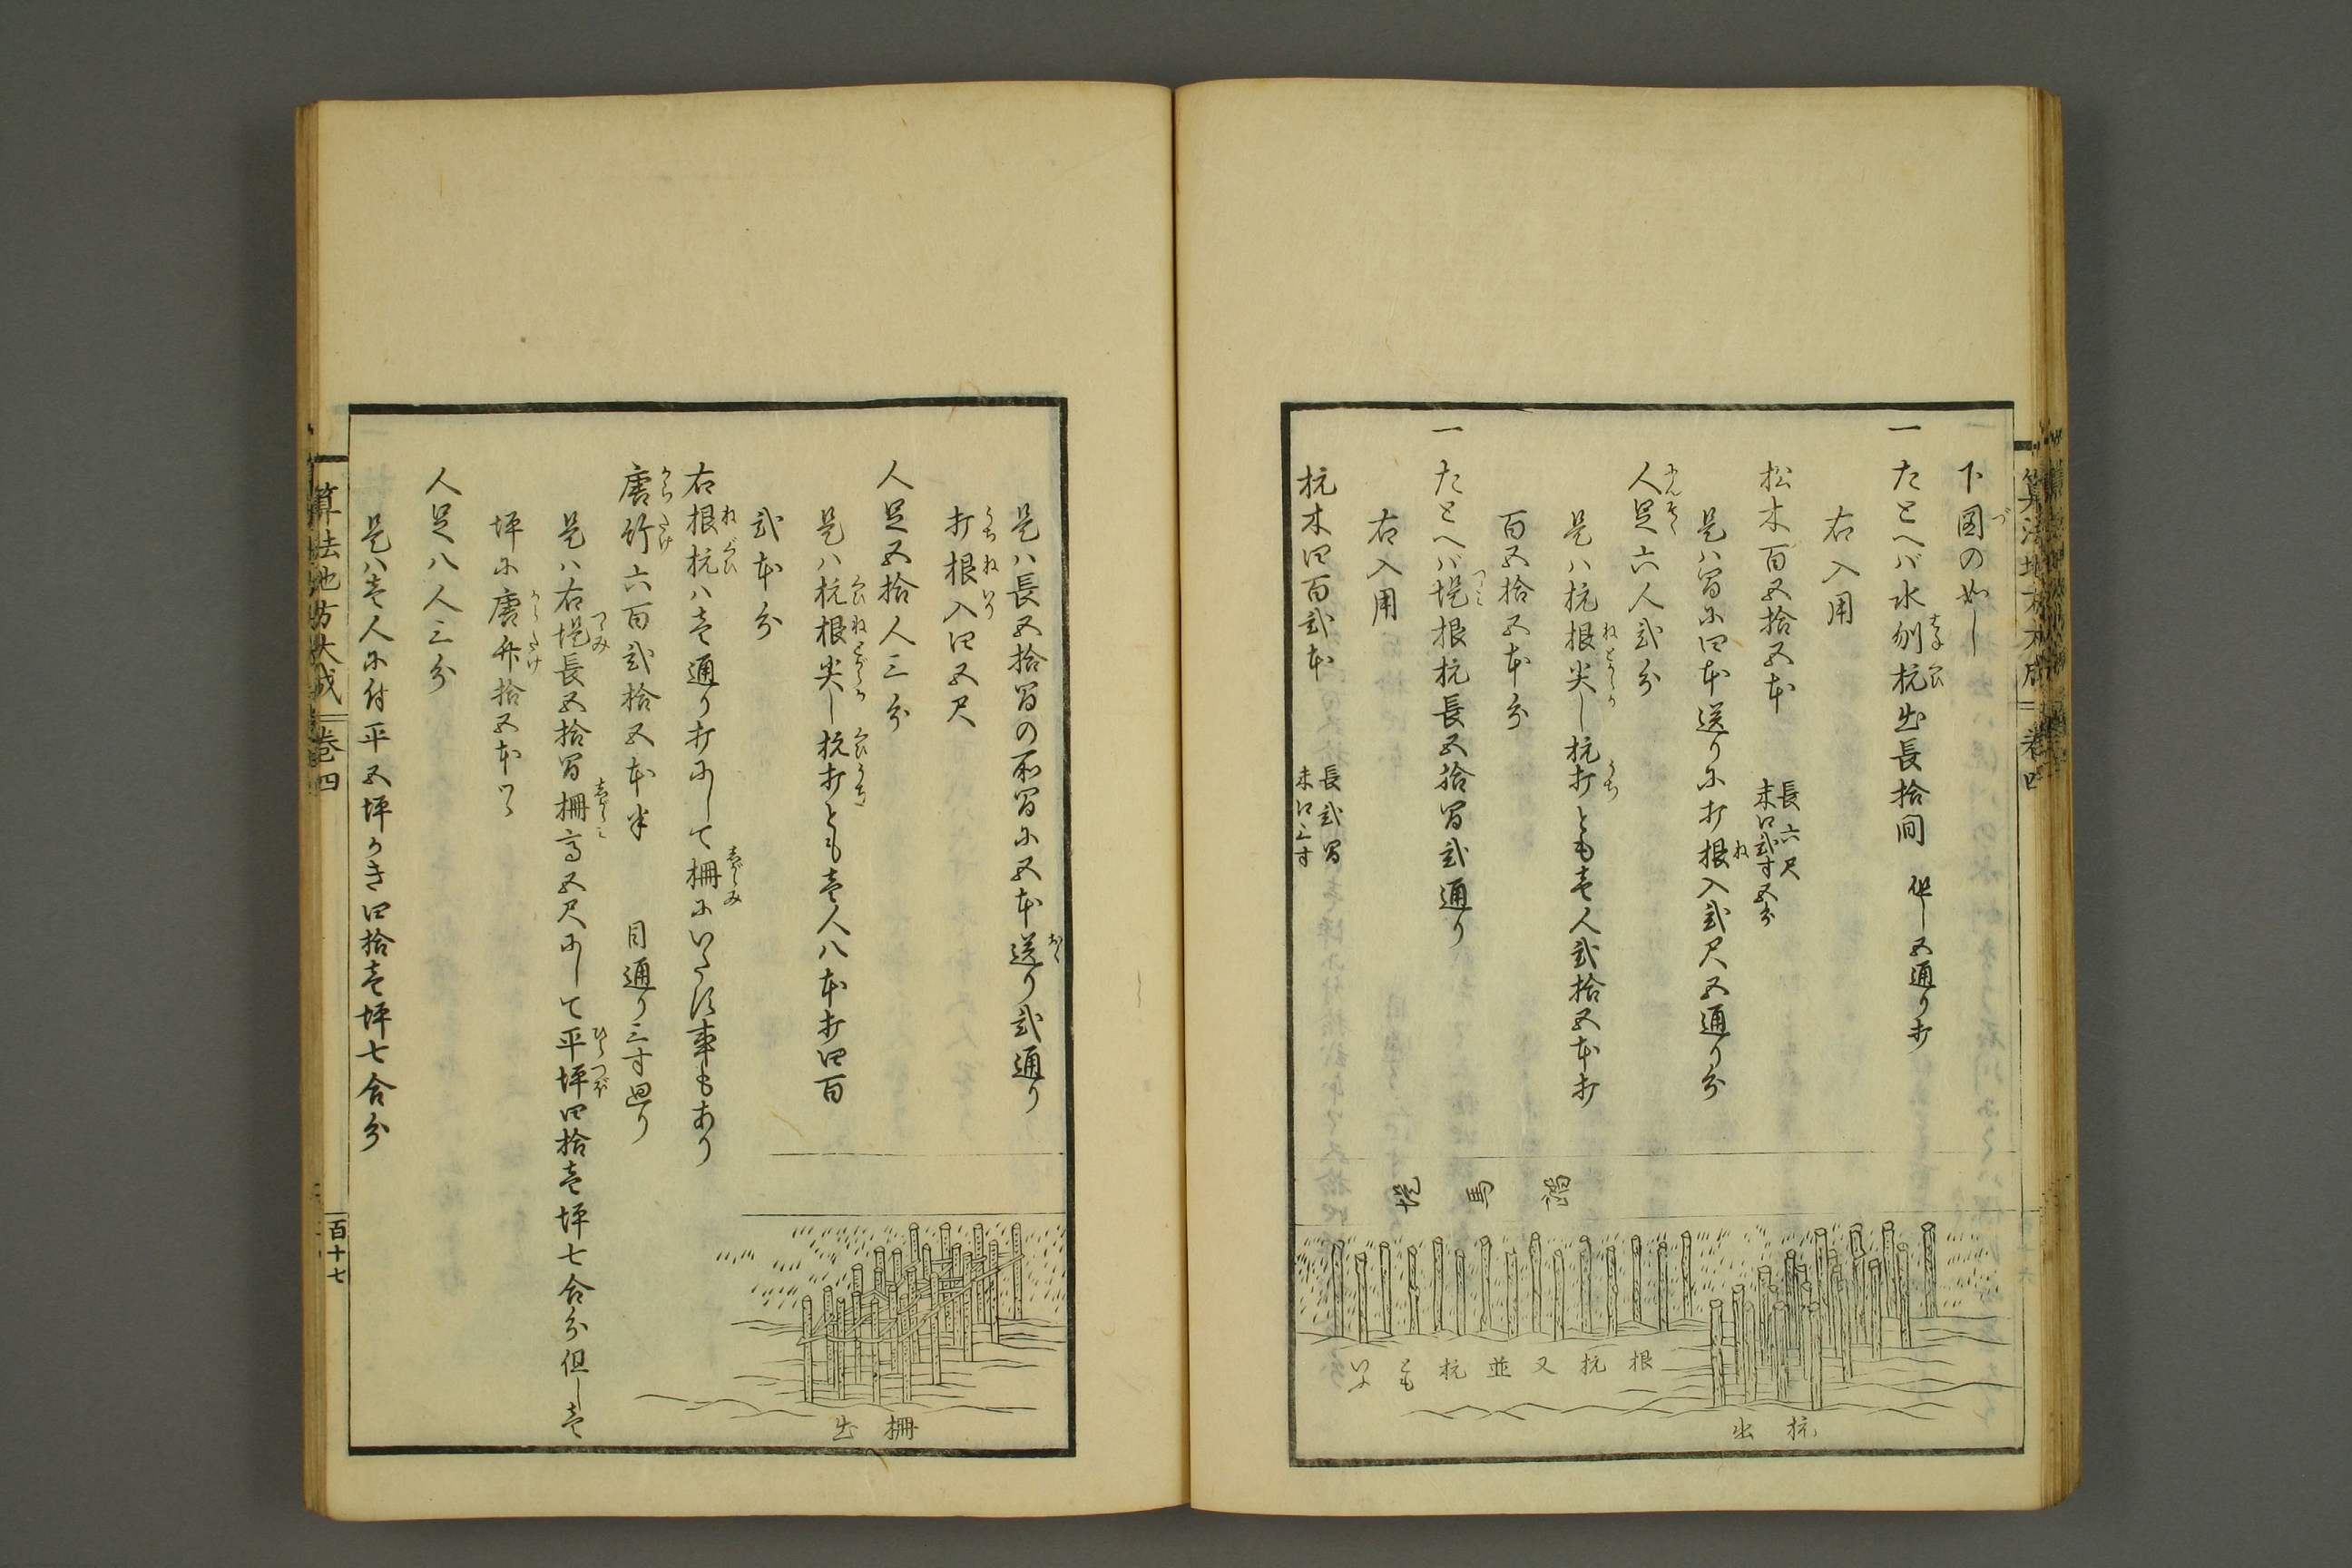 下図の如し
一たとへバ水刎杭出長拾间 但し五通り打
右入用
松木百五拾五本 長六尺 末口弐寸五分
是ハ間ニ四本送りニ打根入弐尺五通り分
人足六人弐分
是ハ杭根尖し杭打とも壱人弐拾五本打
百五拾五本分
一たとへバ堤根杭長五拾間弐通り
右入用
杭木四百弐本 長弐間 末口三寸
堤 馬 踏
根杭又並杭ともいふ
杭出
是ハ長五拾間の所間ニ五本送り弐通り
打根入四五尺
人足五拾人三分
是ハ杭根尖し杭打とも壱人八本打四百
弐本分
右根杭ハ壱通り打ニして柵ニいたす事もあり
唐竹六百弐拾五本半 目通り三寸廻り
是ハ右堤長五拾間柵高五尺ニして平坪四拾壱坪七合分但し壱
坪ニ唐竹拾五本ツヽ
人足八人三分
是ハ壱人ニ付平五坪かき四拾壱坪七合分
柵出
算法地方大成 巻四
百十七